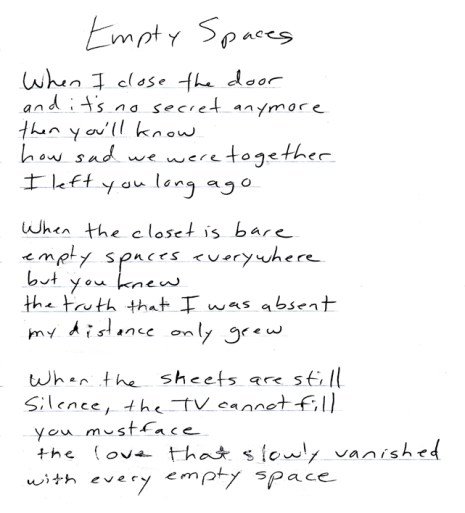 Empty Spaces
When I close the door
and it's no secret anymore
then you'll know
how sad we were together
I left you long ago
When the closet is bare
empty spaces everywhere
but you knew
the truth that I was absent
my distance only grew
When the sheets are still
Silence, the TV cannot fill
you must face
the love that slowly vanished
with every empty space